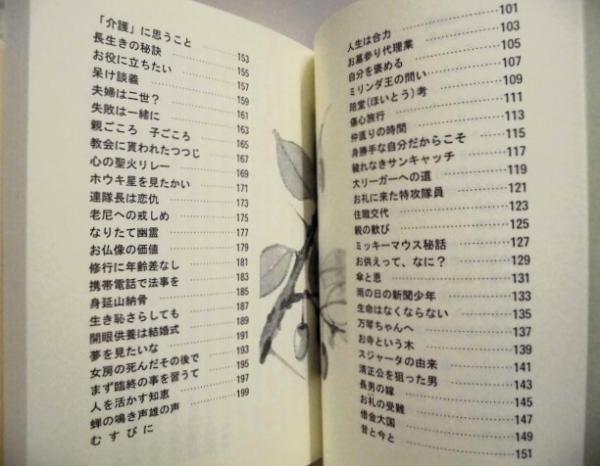 人生は合力 101
お墓参り代理業 103
自分を褒める 105
ミリンダ王の問い 107
陪堂（ほいとう）考 109
傷心旅行 111
仲直りの時間 113
身勝手な自分だからこそ 115
穢れなきサンキャッチ 117
大リーガーへの道 119
お礼に来た特攻隊員 121
住職交代 123
親の歓び 125
ミッキーマウス秘話 127
お供えって、なに？ 129
傘と恩 131
雨の日の新聞少年 133
生命はなくならない 135
万琴ちゃんへ 137
お寺という木 139
スジャータの由来 141
清正公を狙った男 143
長男の嫁 145
お礼の受難 147
借金大国 149
昔と今と 151
「介護」に思うこと 153
長生きの秘訣 155
お役に立ちたい 157
呆け談義 159
夫婦は二世？ 161
失敗は一緒に 163
親ごころ 子ごころ 165
教会に貰われたつつじ 167
心の聖火リレー 169
ホウキ星を見たかい 171
連隊長は恋仇 173
老尼への戒しめ 175
なりたて幽霊 177
お仏像の価値 179
修行に年齢差なし 181
携帯電話で法事を 183
身延山納骨 185
生き恥さらしても 187
開眼供養は結婚式 189
夢を見たいな 191
女房の死んだその後で 193
まず臨終の事を習うて 195
人を活かす知恵 197
蝉の鳴き声雄の声 199
むすびに